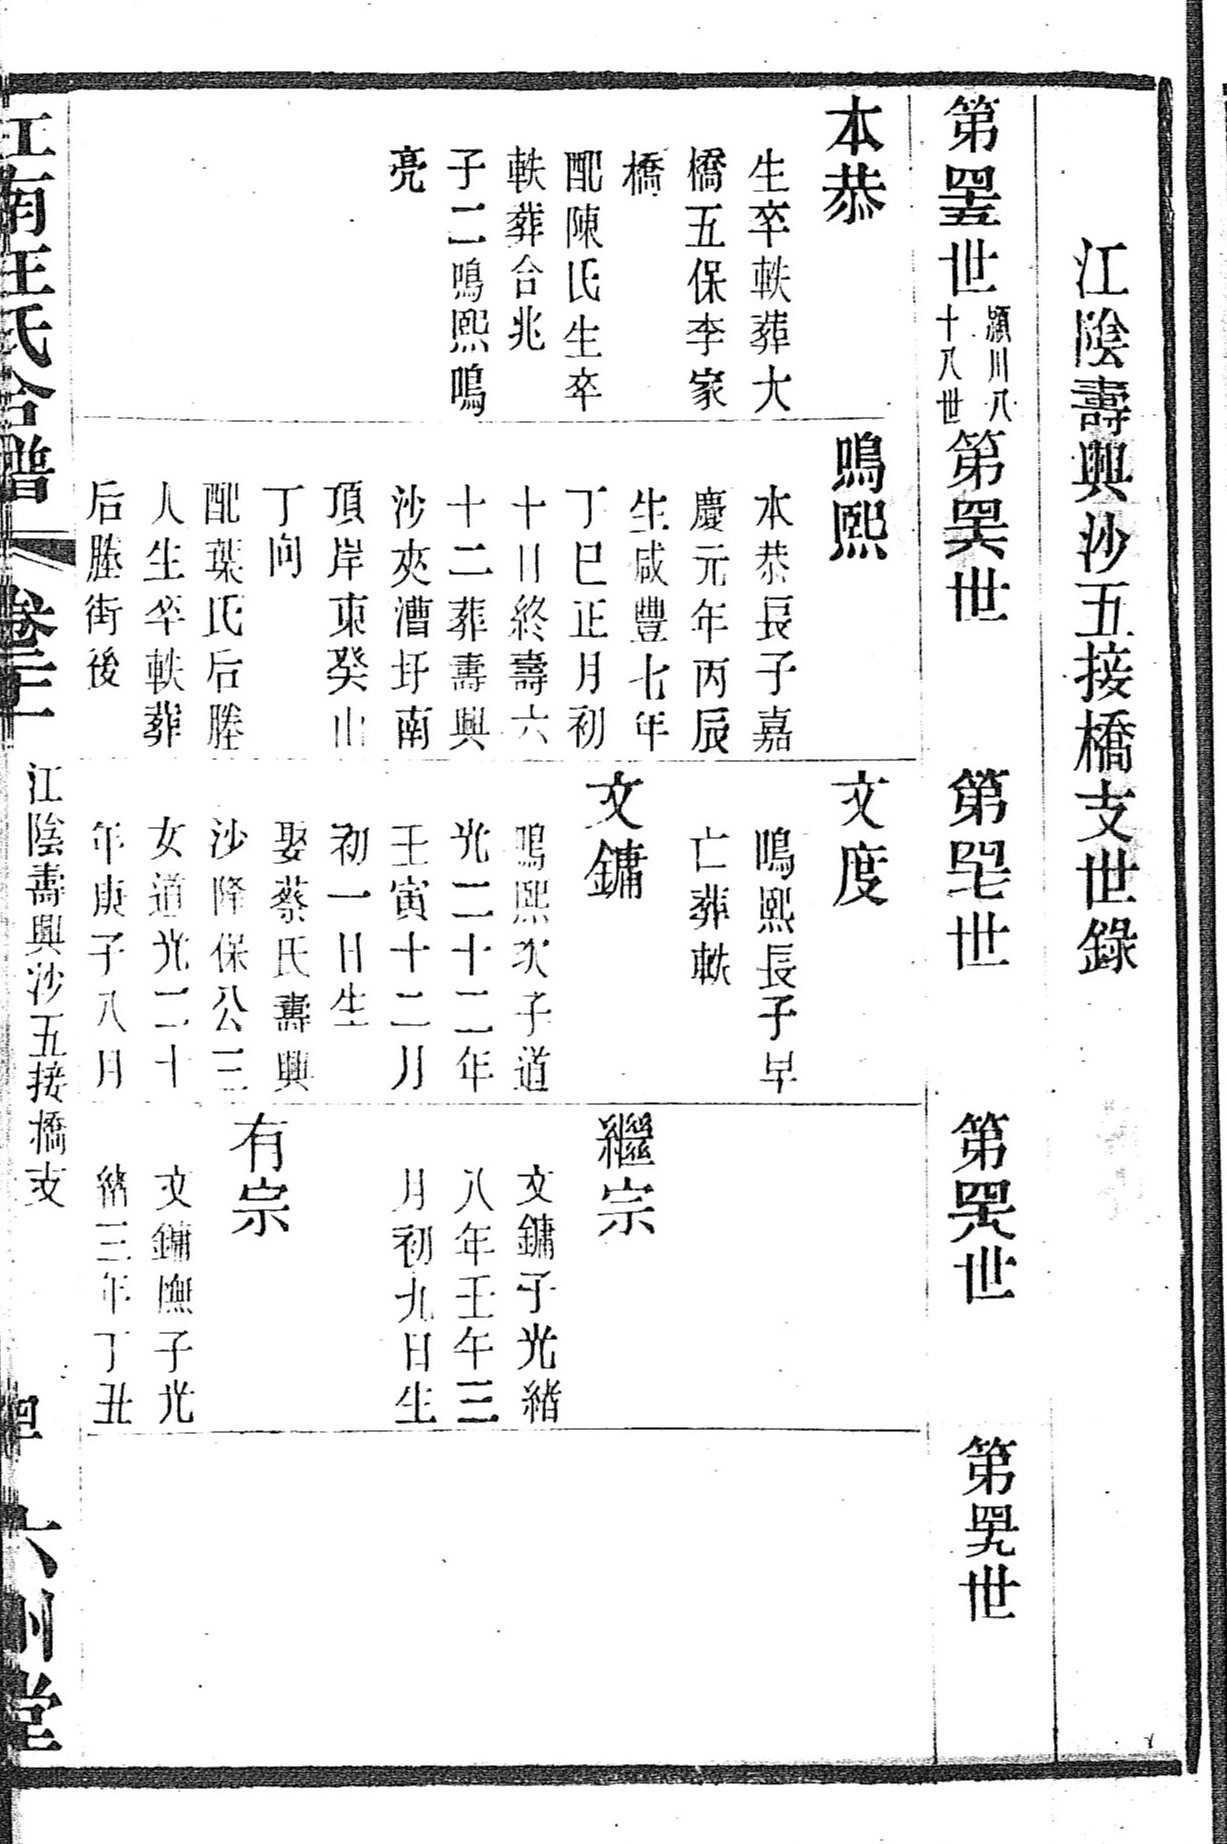 江陰壽興沙五接橋支世錄
第四十五世
潁川八
十八世
第四十六世
第四十七世
第四十八世
第四十九世
本恭
生卒軼葬大
橋五保李家
橋
配陳氏生卒
軼葬合兆
子二鳴熙鳴
亮
鳴熙
本恭長子嘉
慶元年丙辰
生咸豐七年
丁巳正月初
十日終壽六
十二葬壽興
沙夾漕圩南
頂岸東癸山
丁向
配葉氏后塍
人生卒軼葬
后塍街後
文度
鳴熙長子早
亡葬軼
文鏞
鳴熙次子道
光二十二年
壬寅十二月
初一日生
娶蔡氏壽興
沙降保公三
女道光二十
年庚子八月
繼宗
文鏞子光緒
八年壬午三
月初九日生
有宗
文鏞憮子光
緒三年丁丑
江南汪氏合譜
江陰壽興沙五接橋支
六州堂